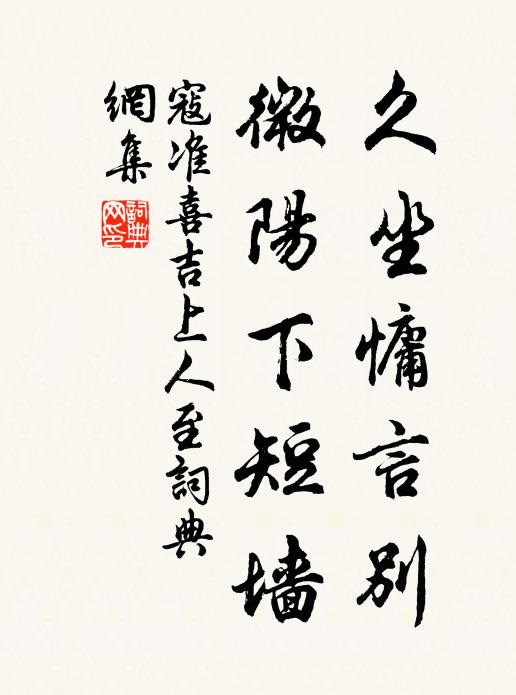 久坐慵言別
微陽下短墙
寇准喜吉上人至詞典
網集
詞典
网印